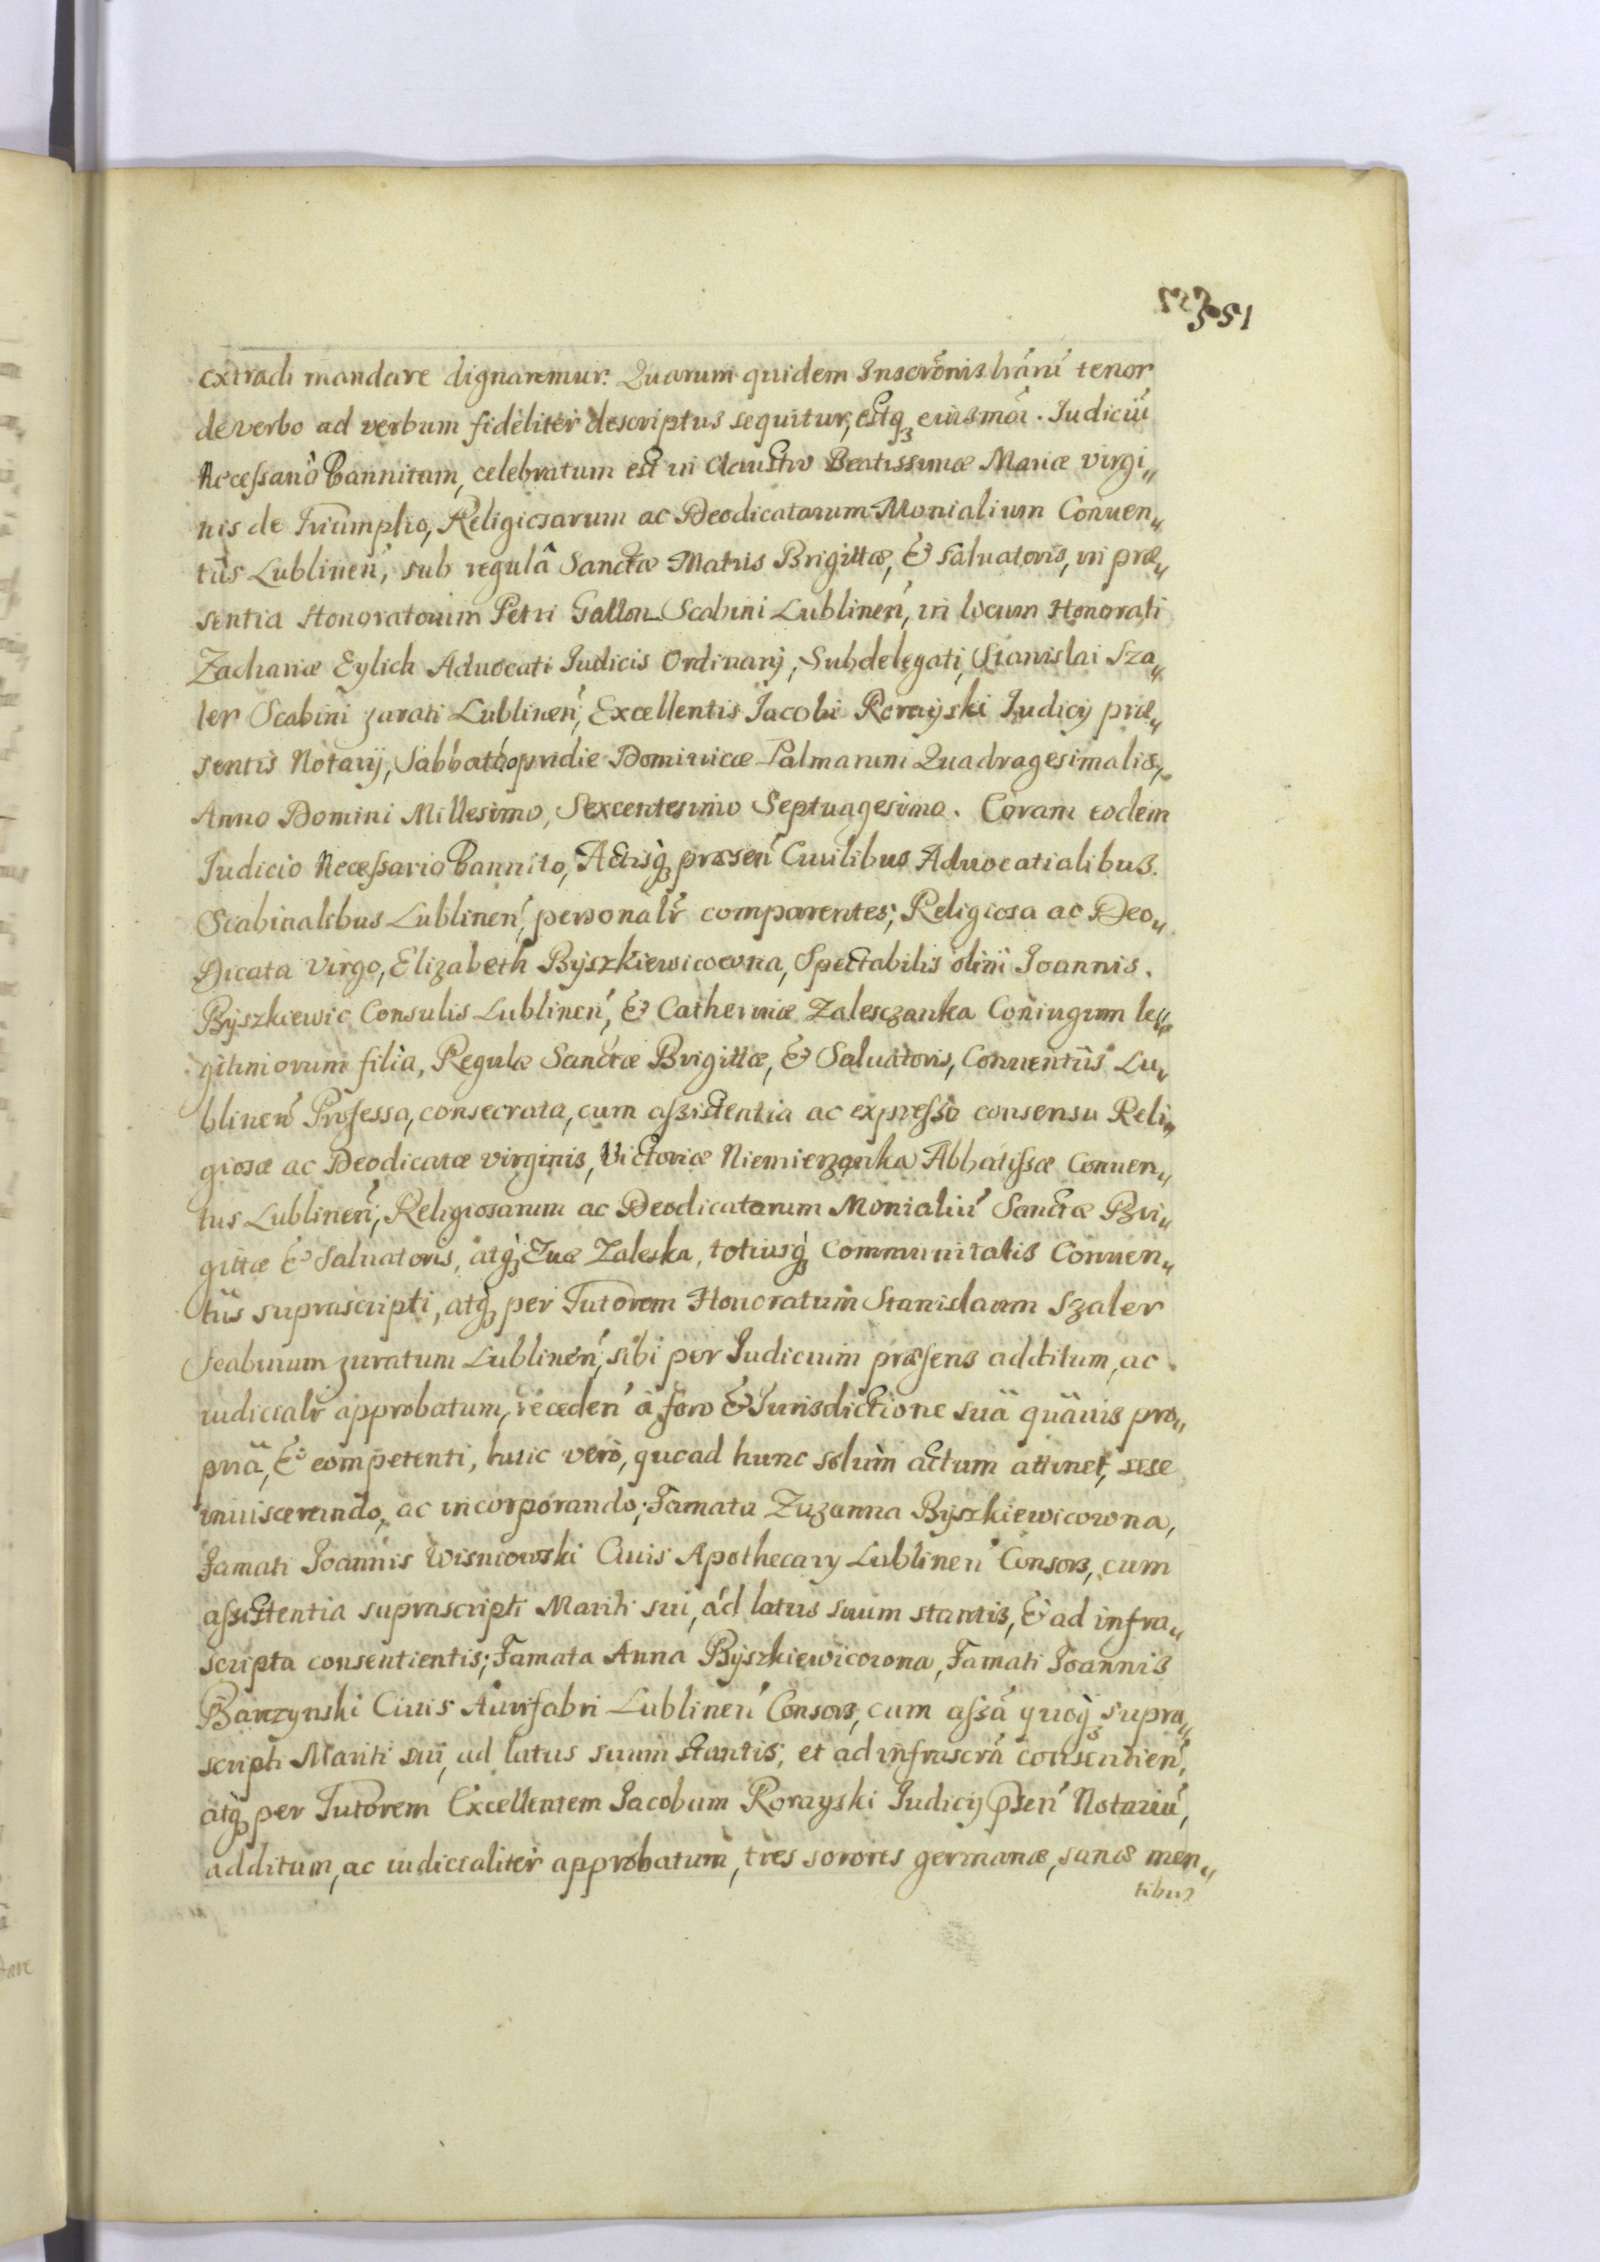 extradi mandare dignaremur. Quarum quidem Inscrönis harú tenor
de verbo ad verbum fideliter descriptus sequitur, estq₃ eiusmói. Iudiciú
Necessario bannitum, celebratum est in Claustro Beatissimæ Mariæ virgi„
nis de Triumpho, Religiosarum ac Deodicatarum Monialium Conuen„
tûs Lublinen̄, sub regulâ Sanctæ Matris Brigittæ, & Saluatoris, in præ„
sentia Honoratorum Petri Gallon Scabini Lublinen̄, in locum Honorati
Zachariæ Eylich Aduocati Iudicis Ordinarij, Subdelegati, Stanislai Sza„
ler Scabini jurati Lublinen̄, Excellentis Jacobi Rorayski Judicij præ„
sentis Notarij, Sabbatho pridie Dominicæ Palmarum Quadragesimalis,
Anno Domini Millesimo, Sexcentesimo Septuagesimo. Coram eodem
Judicio Necessario bannito, Actisq₃ præsen̄ Ciuilibus Aduocatialibus
Scabinalibus Lublinen̄, personalr̄ comparentes; Religiosa ac Deo„
Dicata Virgo, Elizabeth Byszkiewicowna, Spectabilis olim Joannis
Byszkiewic Consulis Lublinen̄, & Catherinæ Zalesczanka Coniugum le„
gitimorum filia, Regulæ Sanctæ Brigittæ, & Saluatoris, Conuentûs Lu„
blinen̄ Professa, consecrata, cum assistentia ac expresso consensu Reli„
giosæ ac Deodicatæ virginis, Victoriæ Niemierzanka Abbatissæ Conuen„
tus Lublinen̄, Religiosarum ac Deodicatarum Monialiú Sanctæ Bri„
gittæ & Saluatoris, atq₃ Euæ Zaleska, totiusq₃ Communitatis Conuen„
tûs suprascripti, atq₃ per Tutorem Honoratum Stanislaum Szaler
Scabinum juratum Lublinen̄, sibi per Judicium præsens additum, ac
iudicialr̄ approbatum, receden̄ à foro & Jurisdictione suâ quâuis pro„
priâ, & competenti, huic verò, quoad hunc solùm actum attinet, sese
inuiscerando, ac incorporando; Famata Zuzanna Byszkiewicowna,
Famati Joannis Wisniowski Ciuis Apothecarij Lublinen̄ Consors, cum
assistentia suprascripti Mariti sui, ad latus suum stantis, & ad infra„
scripta consentientis; Famata Anna Byszkiewicowna, Famati Joannis
Barzynski Ciuis Aurifabri Lublinen̄ Consors, cum assā quoq₃ supra„
scripti Mariti sui, ad latus suum stantis, et ad infrascrā consentien̄,
atq₃ per Tutorem Excellentem Jacobum Rorayski Judicij p̄sen̄ Notariú,
additum, ac iudicialiter approbatum, tres sorores germanæ, sanis men„
tibus